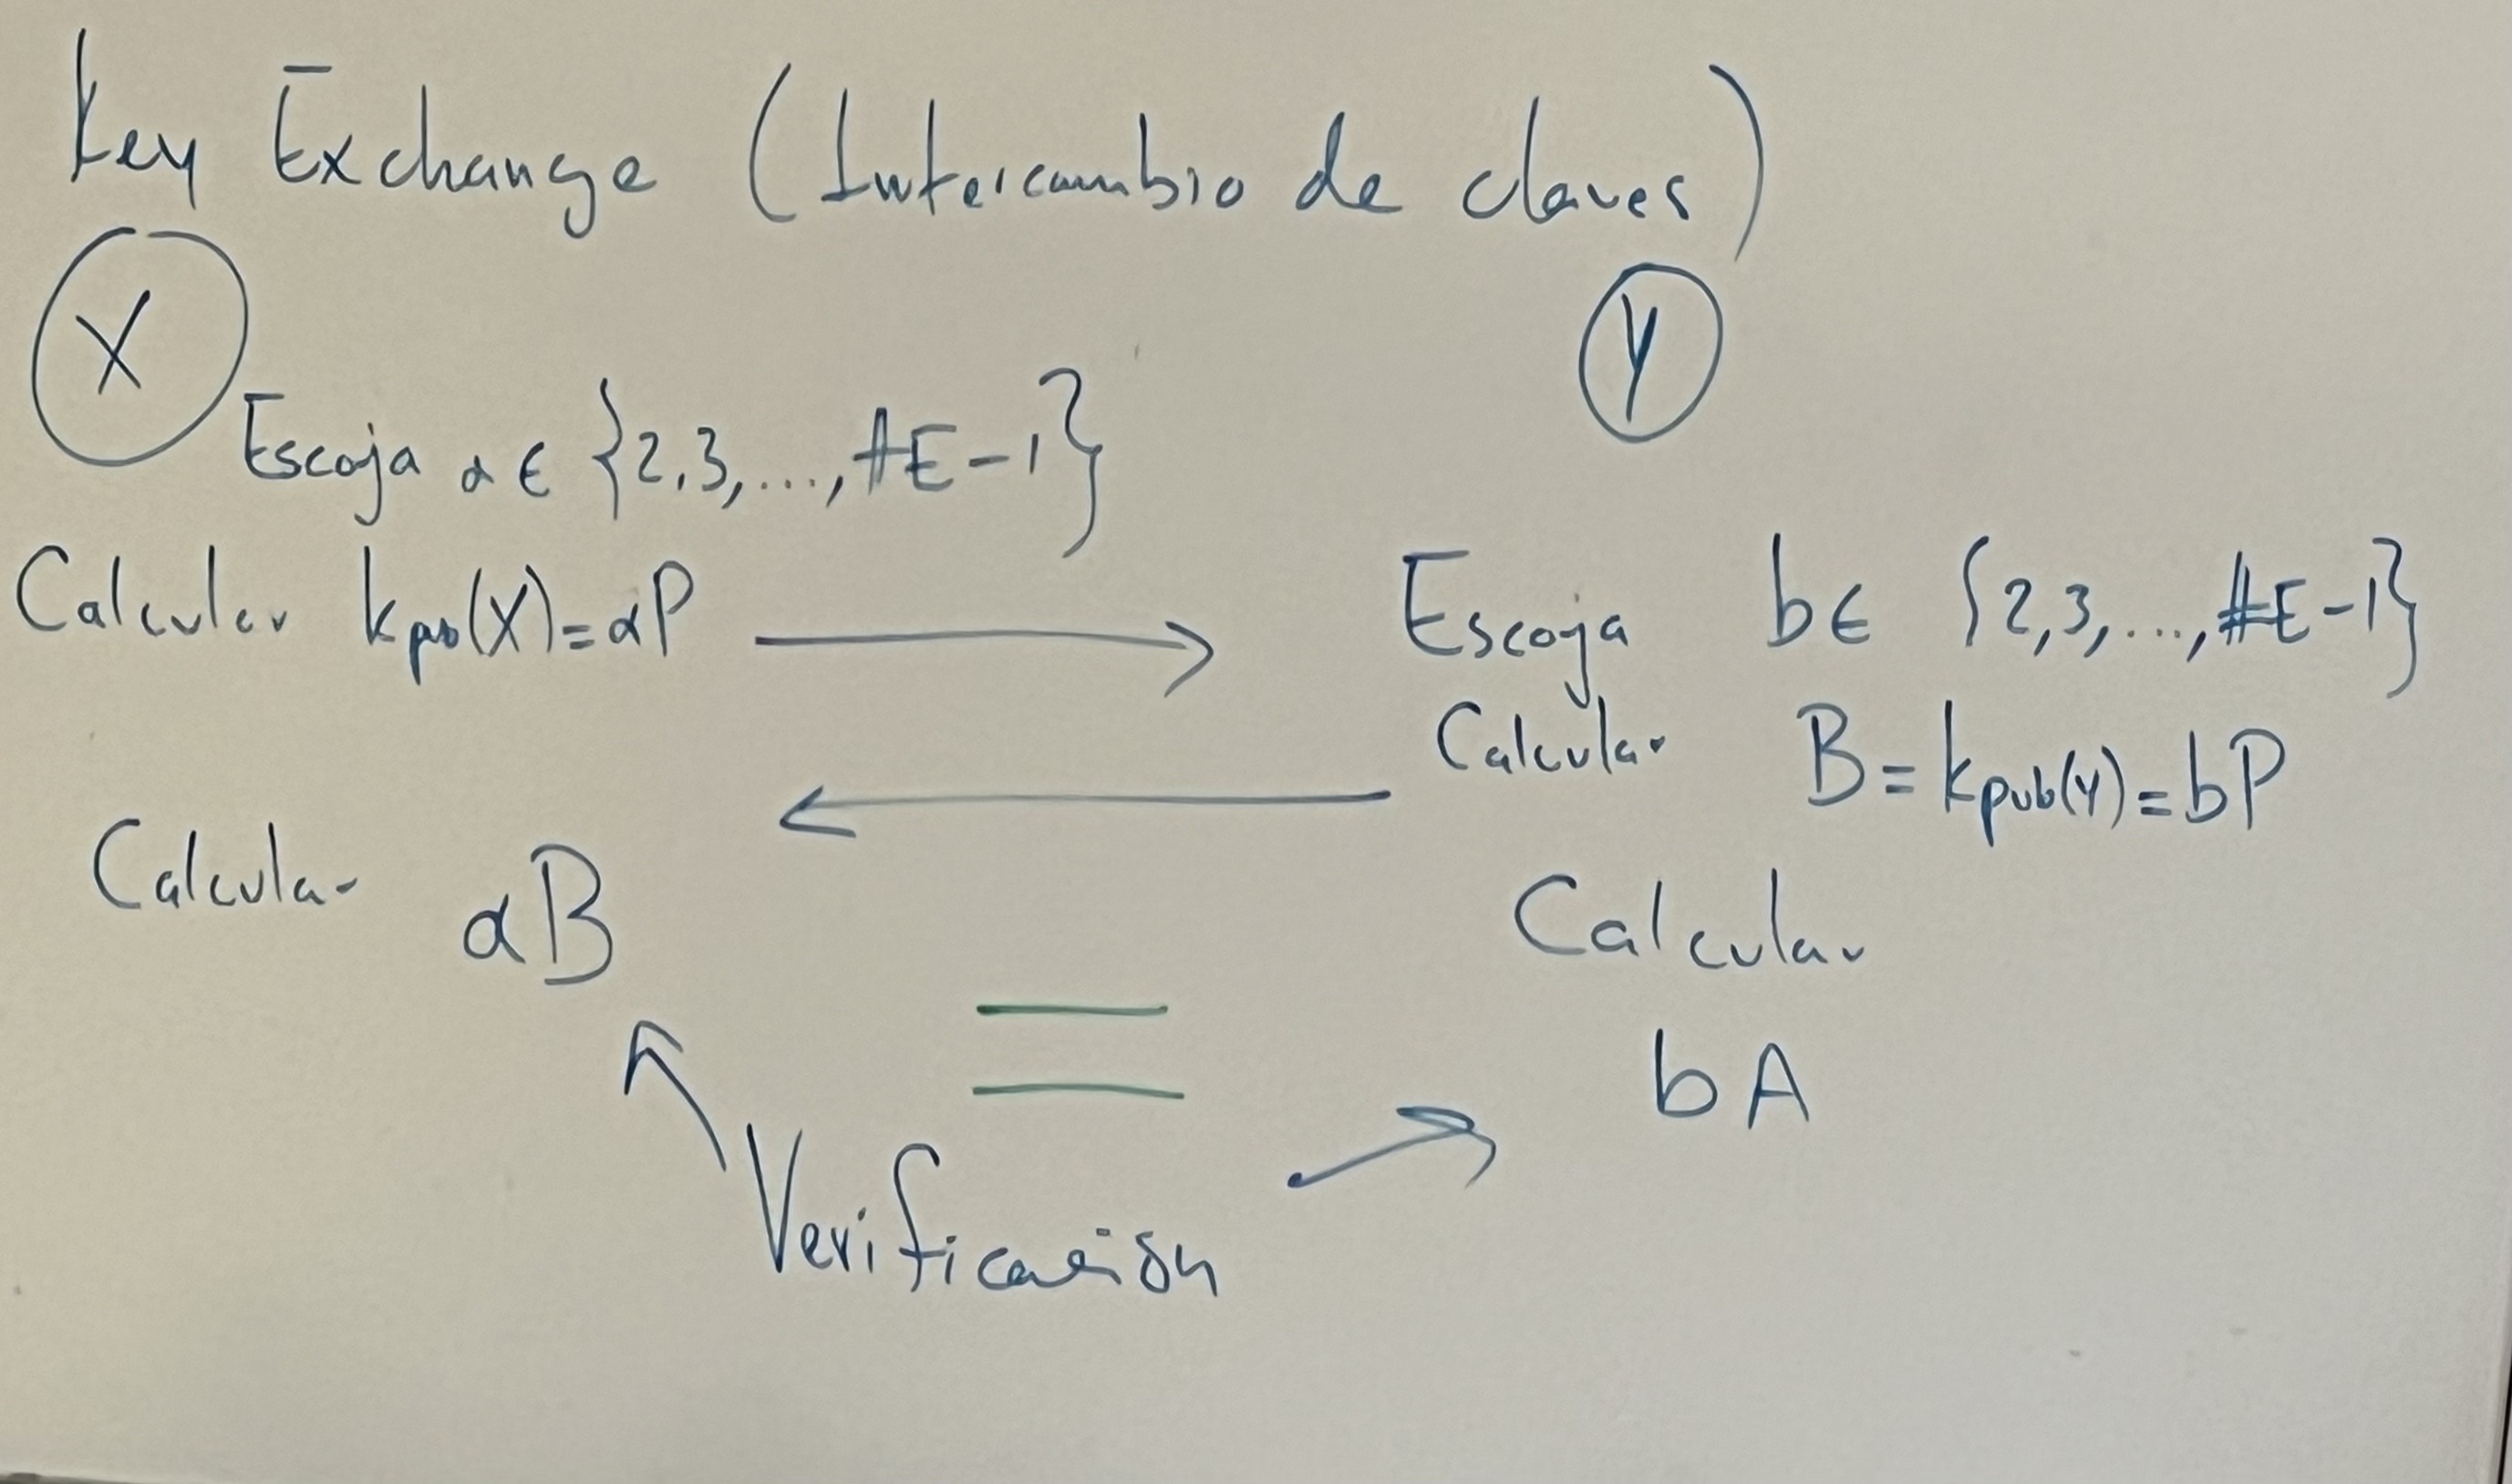 Key Exchange (Intercambio de claves)
X
Y
Escoja α ∈ {2,3,...,#E-1}
Calcular kpub(X)=αP
Escoja b∈ {2,3,...,#E-1}
Calcular B=kpub(Y)=bP
Calcular αB
Calcular
bA
=
Verificación